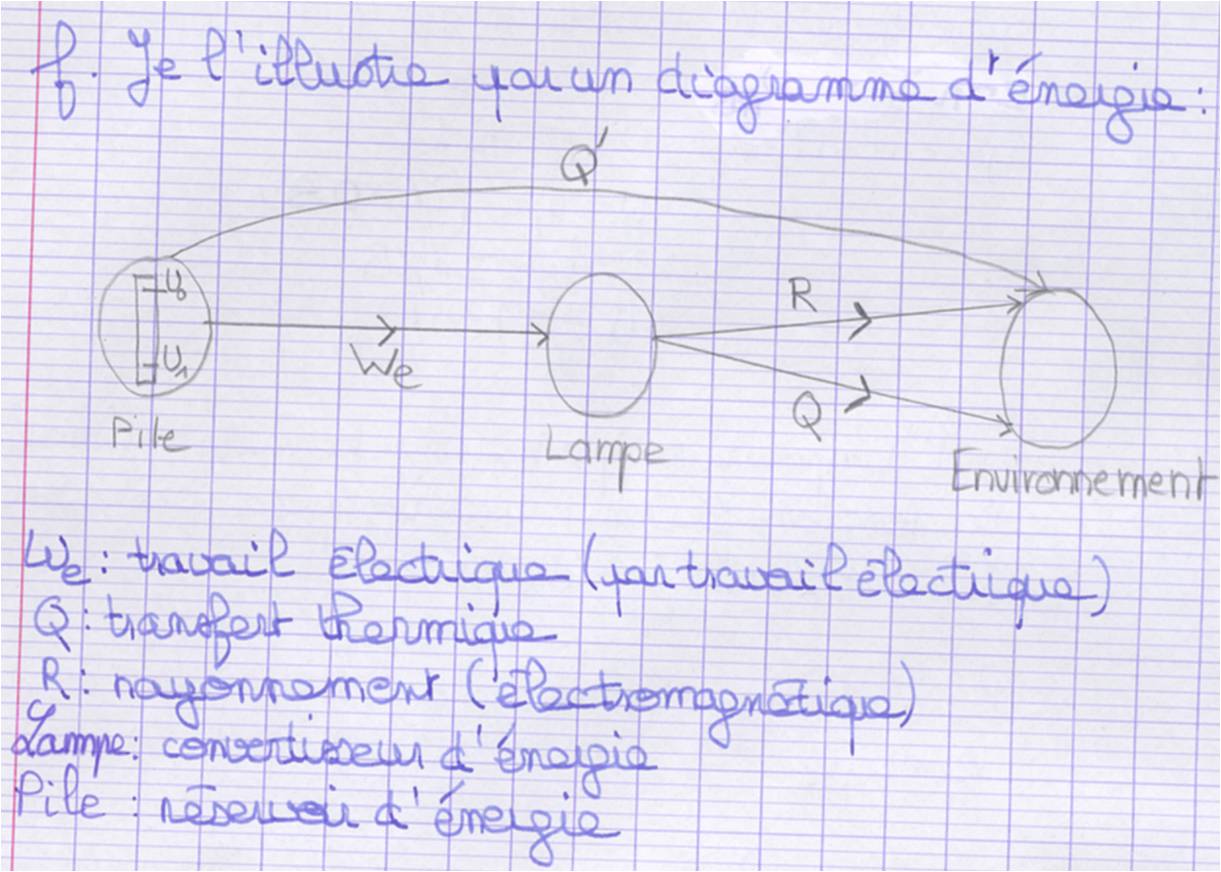 f. Je l'illustre par un diagramme d'énergie :
Q'
R
We
Q
Pile
Lampe
Environnement
We : travail électrique (par travail électrique)
Q : transfert thermique
R : rayonnement (électromagnétique)
Lampe : convertisseur d'énergie
Pile : réservoir d'énergie